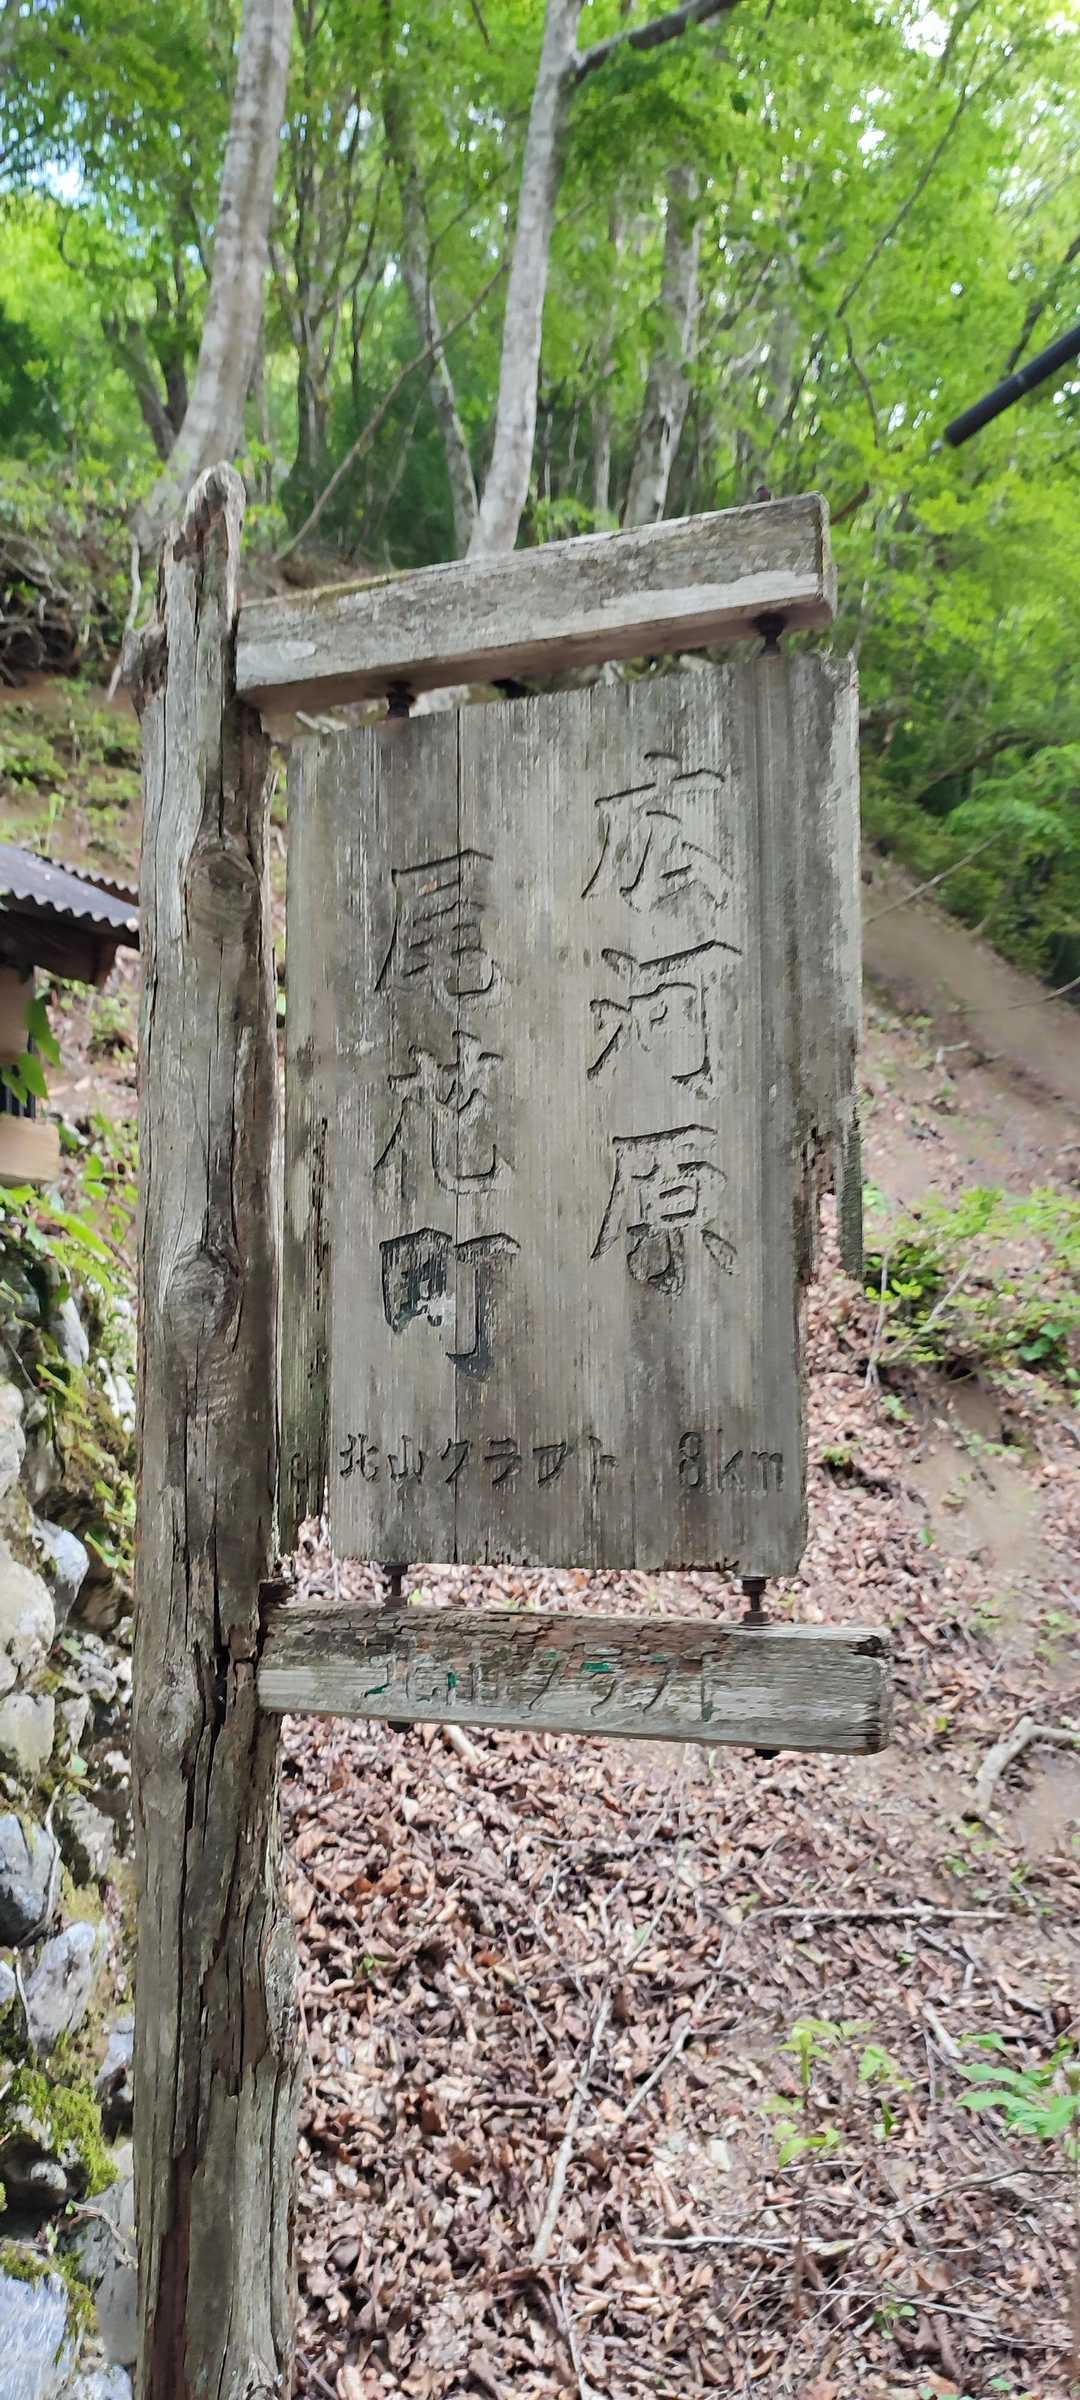 広河原
尾花町
北山クラフト 8km
北山クラフト